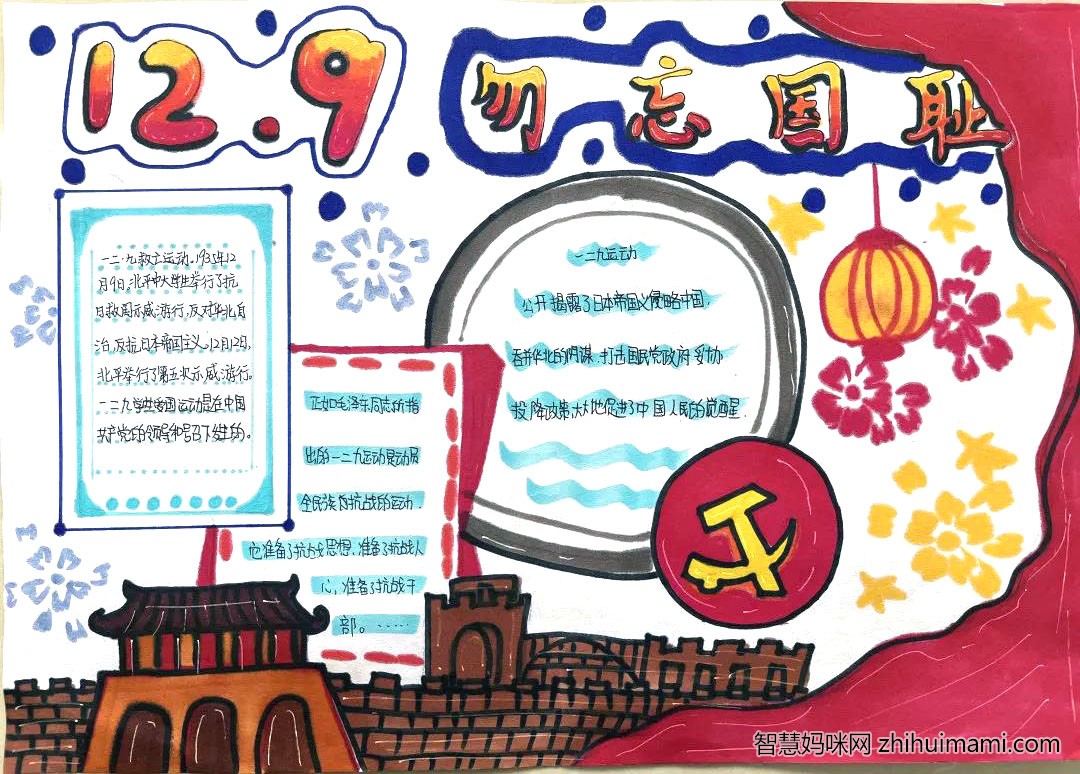 12.9
勿忘国耻
一二·九救亡运动。1935年12
月9日,北平大学生举行了抗
日救国示威游行,反对华北自
治,反抗日本帝国主义。12月12日,
北平举行了第五次示威游行。
一二·九学生爱国运动是在中国
共产党的领导和号召下发生的。
正如毛泽东同志所指
出的一二九运动是动员
全民族抗战的运动.
它准备了抗战思想,准备了抗战人
心,准备了抗战干
部。……
一二九运动
公开揭露了日本帝国义侵略中国,
吞并华北的阴谋.打击国民党政府妥协
投降政策,大大地促进了中国人民的觉醒.
智慧妈咪网 zhihuimami.com